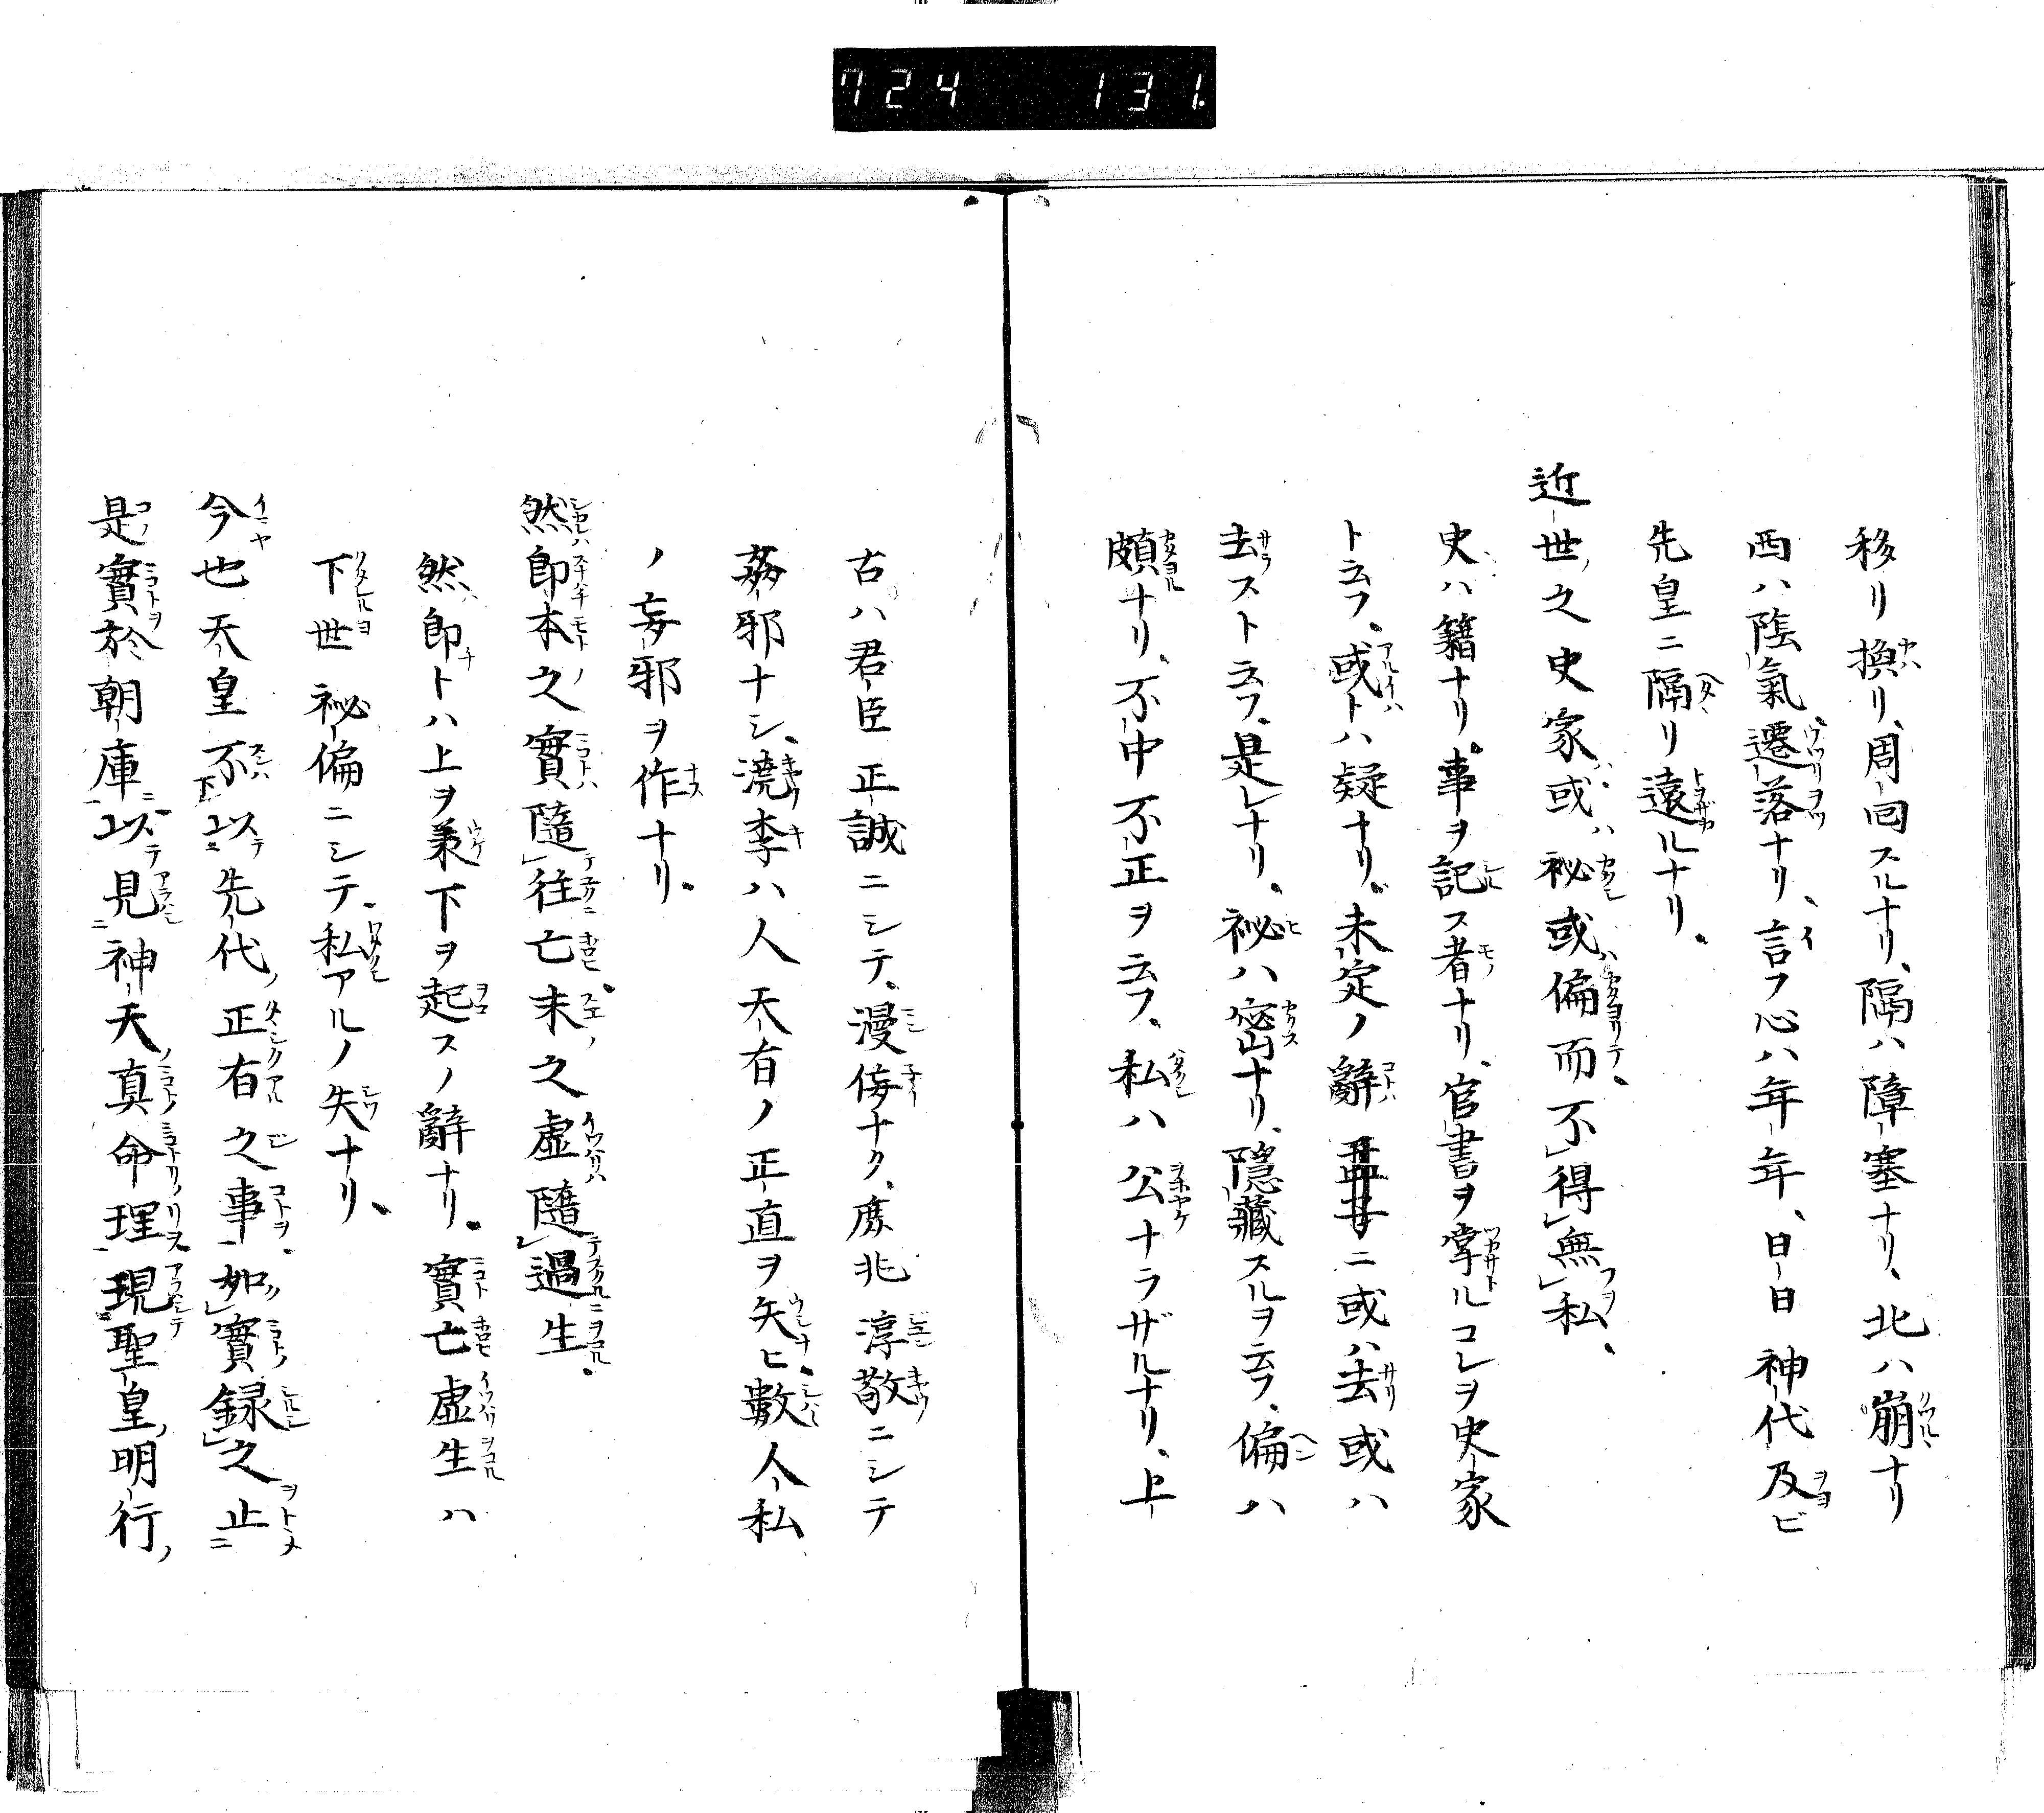 724 131
移リ換リ、周回スルナリ、隔ハ障塞ナリ、北ハ崩ナリ
西ハ陰氣遷落ナリ、言フ心ハ年年、日日神代及ビ
先皇ニ隔リ遠ルナリ、
近世之史家或ハ祕或ハ偏而不得無私、
史ハ籍ナリ、事ヲ記ス者ナリ、官書ヲ掌ルコレヲ史家
ト云フ、或トハ疑ナリ、未定ノ辭ニ或ハ去或ハ
去スト云フ、是レナリ、祕ハ密ナリ、隱藏スルヲ云フ、偏ハ
頗ナリ、不中不正ヲ云フ、私ハ公ナラザルナリ、上
古ハ君臣正誠ニシテ、漫侮ナク、庶兆淳敬ニシテ
姦邪ナシ、澆季ハ人天有ノ正直ヲ失ヒ、數人私
ノ妄邪ヲ作ナリ、
然即本之實隨往亡、末之虛隨過生、
然即トハ上ヲ兼下ヲ起スノ辭ナリ、實亡虛生ハ
下世祕偏ニシテ、私アルノ失ナリ、
今也天皇不以先代正有之事、如實録之止
是實於朝庫以見神天真命理現聖皇明行